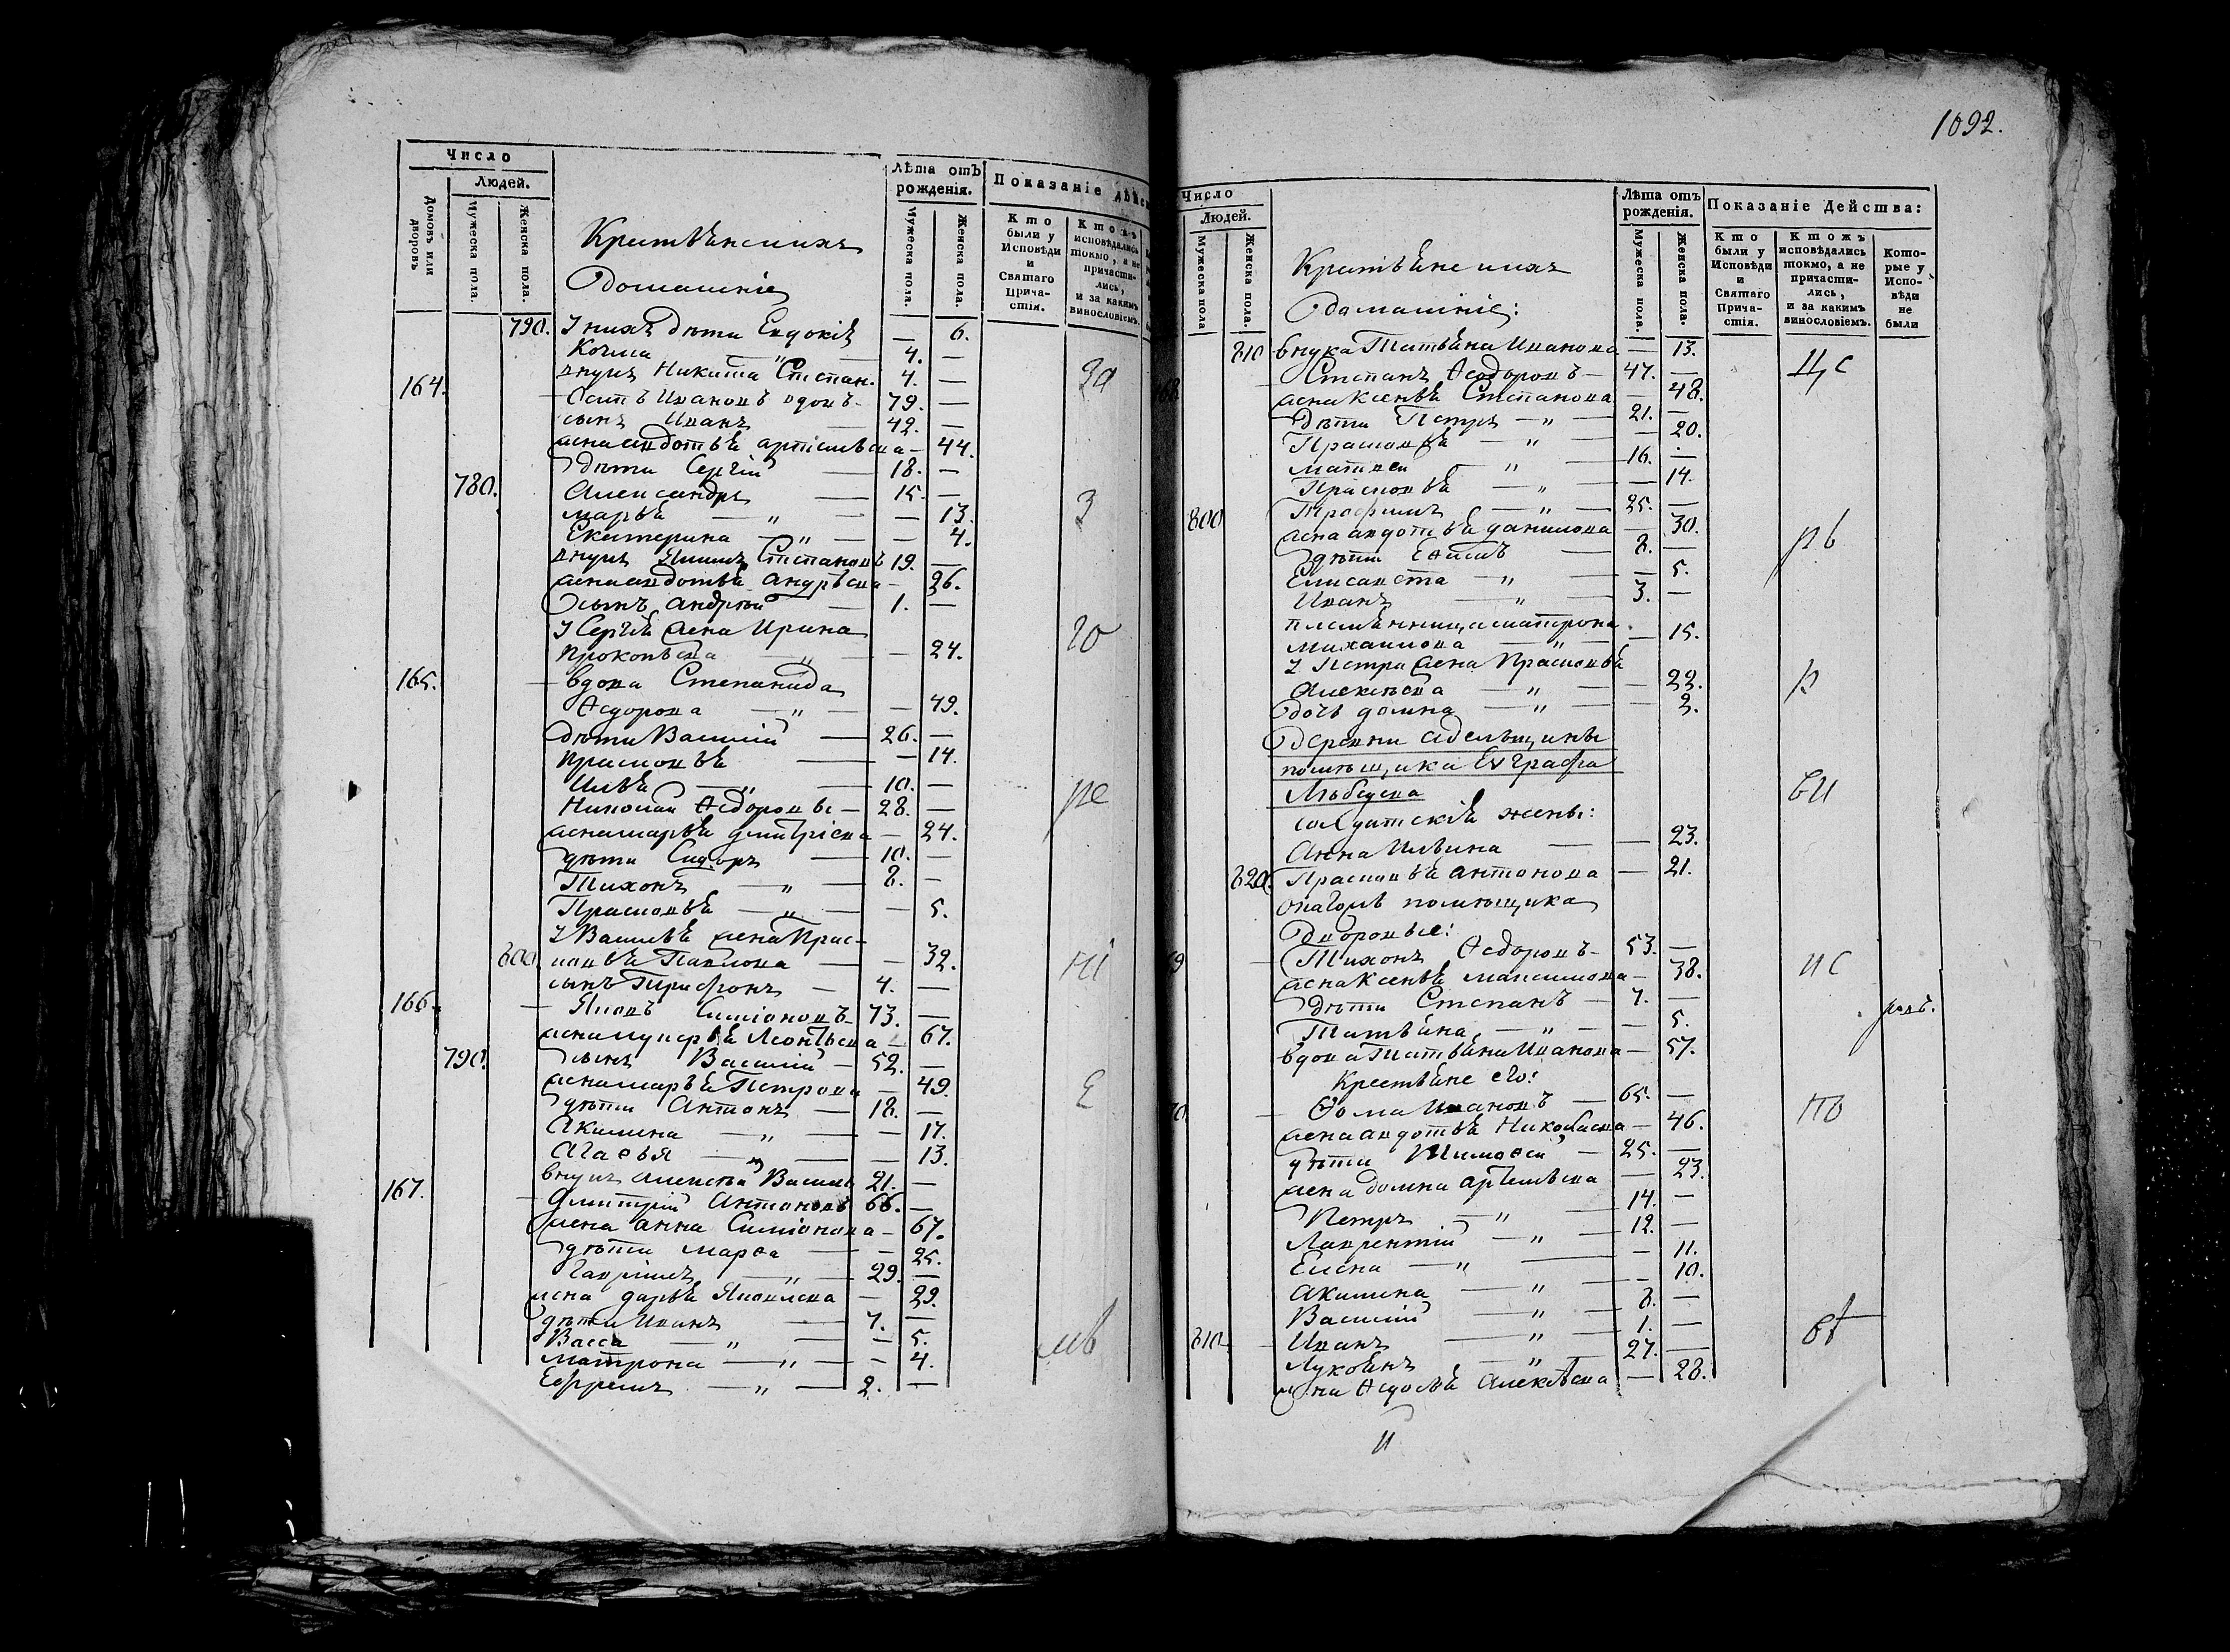 1092.
Число
Людей.
Домовъ или дворовъ
Мужеска пола.
Женска пола.
Лѣта отъ рожденія.
Мужеска пола.
Женска пола.
Показаніе дѣйс
Кто были у Исповѣди и Святаго Прича- стія.
Ктожъ исповѣдались токмо, а не причасти- лись, и за какимъ винословіемъ.
Крестьянскихъ
Домашніе
790. У нихъ дѣти Евдокія — 6.
Козма — " — 4. —
внукъ Никита Степан. 4. — За
164. — Осипъ Ивановъ вдовъ. 79. —
сынъ Иванъ — 42. —
жена авдотья артемьева — 44.
дѣти Сергій — 18. —
780. Александръ — 15. —
марья — " — — 13. З
Екатерина — " — — 4.
внукъ Якимъ Степановъ 19. —
жена авдотья андрѣева — 26.
сынъ андрѣй — 1. —
У Сергія жена Ирина го
Прокопьева — " — — 24.
165. — вдова Степанида
Ѳедорова — " — — 49.
дѣти Василій — 26. —
Прасковья — — 14.
Илья — " — 10. —
Николай Ѳедоровъ — 28. — ре
жена марья дмитріева — 24.
дѣти Сидоръ — 10. —
Тихонъ — " — 8. —
Прасковья — " — — 5.
У Василья жена Прас-
800. ковья Павлова — — 32. ні
сынъ Трифонъ — 4. —
166. — Яковъ Симіоновъ 73. —
жена лукерья Леонтьева — 67.
790. сынъ Василій — 52. —
жена марья Петрова — 49.
дѣти Антонъ — 18. — Е
Акилина — " — — 17.
Агаѳья — " — — 13.
внукъ алексѣй Василь 21. —
167. — Дмитрій Антоновъ 66. —
жена анна Симіонова — 67.
дѣти марѳа — — 25.
Гавріилъ — " — 29. —
жена дарья Яковлева — 29.
дѣти Иванъ — 7. —
Васса — " — — 5.
Матрона — " — — 4. мв
Ефремъ — " — 2. —
Число
Людей.
Мужеска пола
Женска пола.
Лѣта отъ рожденія.
Мужеска пола.
Женска пола.
Показаніе Действа:
Кто были у Исповѣди и Святаго Прича- стія.
Ктожъ исповѣдались токмо, а не причасти- лись, и за какимъ винословіемъ.
Кото- рые у Испо- вѣди не были
Крестьянскихъ
Домашніе:
810 внука Татьяна Иванова — 13.
168 — Степанъ Ѳедоровъ — 47. — Щс
жена Ксенья Степанова — 48.
дѣти Петръ — " — 21. —
Прасковья — " — — 20.
Матвей — " — 16. —
Прасковья — " — — 14.
800 Трофимъ — " — 25. —
жена авдотья данилова — 30.
дѣти Ефимъ — 8. — рв
Елисавета — " — — 5.
Иванъ — " — 3. —
племянница матрона
михаилова — " — — 15.
У Петра жена Прасковья
Алексѣева — " — — 22. р
дочь домна — " — — 2.
Деревни адельщины
помѣщика Евграфа
Лѣбедева ви
солдатскія жены:
Анна Ильина — — 23.
820. Прасковья антонова — 21.
онагожъ помѣщика
Дворовые:
9 — Тихонъ Ѳедоровъ — 53. —
жена Ксенья максимова — 38. ис
дѣти Степанъ — 7. —
Татьяна — " — — 5.
вдова Татьяна Иванова — 57.
Крестьяне его:
70 — Ѳома Ивановъ — 65. —
жена авдотья Николаева — 46. по
дѣти Тимоѳей — 25. —
жена домна артемьева — 23.
Петръ — " — 14. —
Лаврентій — " — 12. —
Елена — " — — 11.
акилина — " — — 10.
Василій — " — 8. —
810 — Иванъ — " — 1. —
Лукоянъ — " — 27. —
жена Ѳедосья Алексѣева — 28.